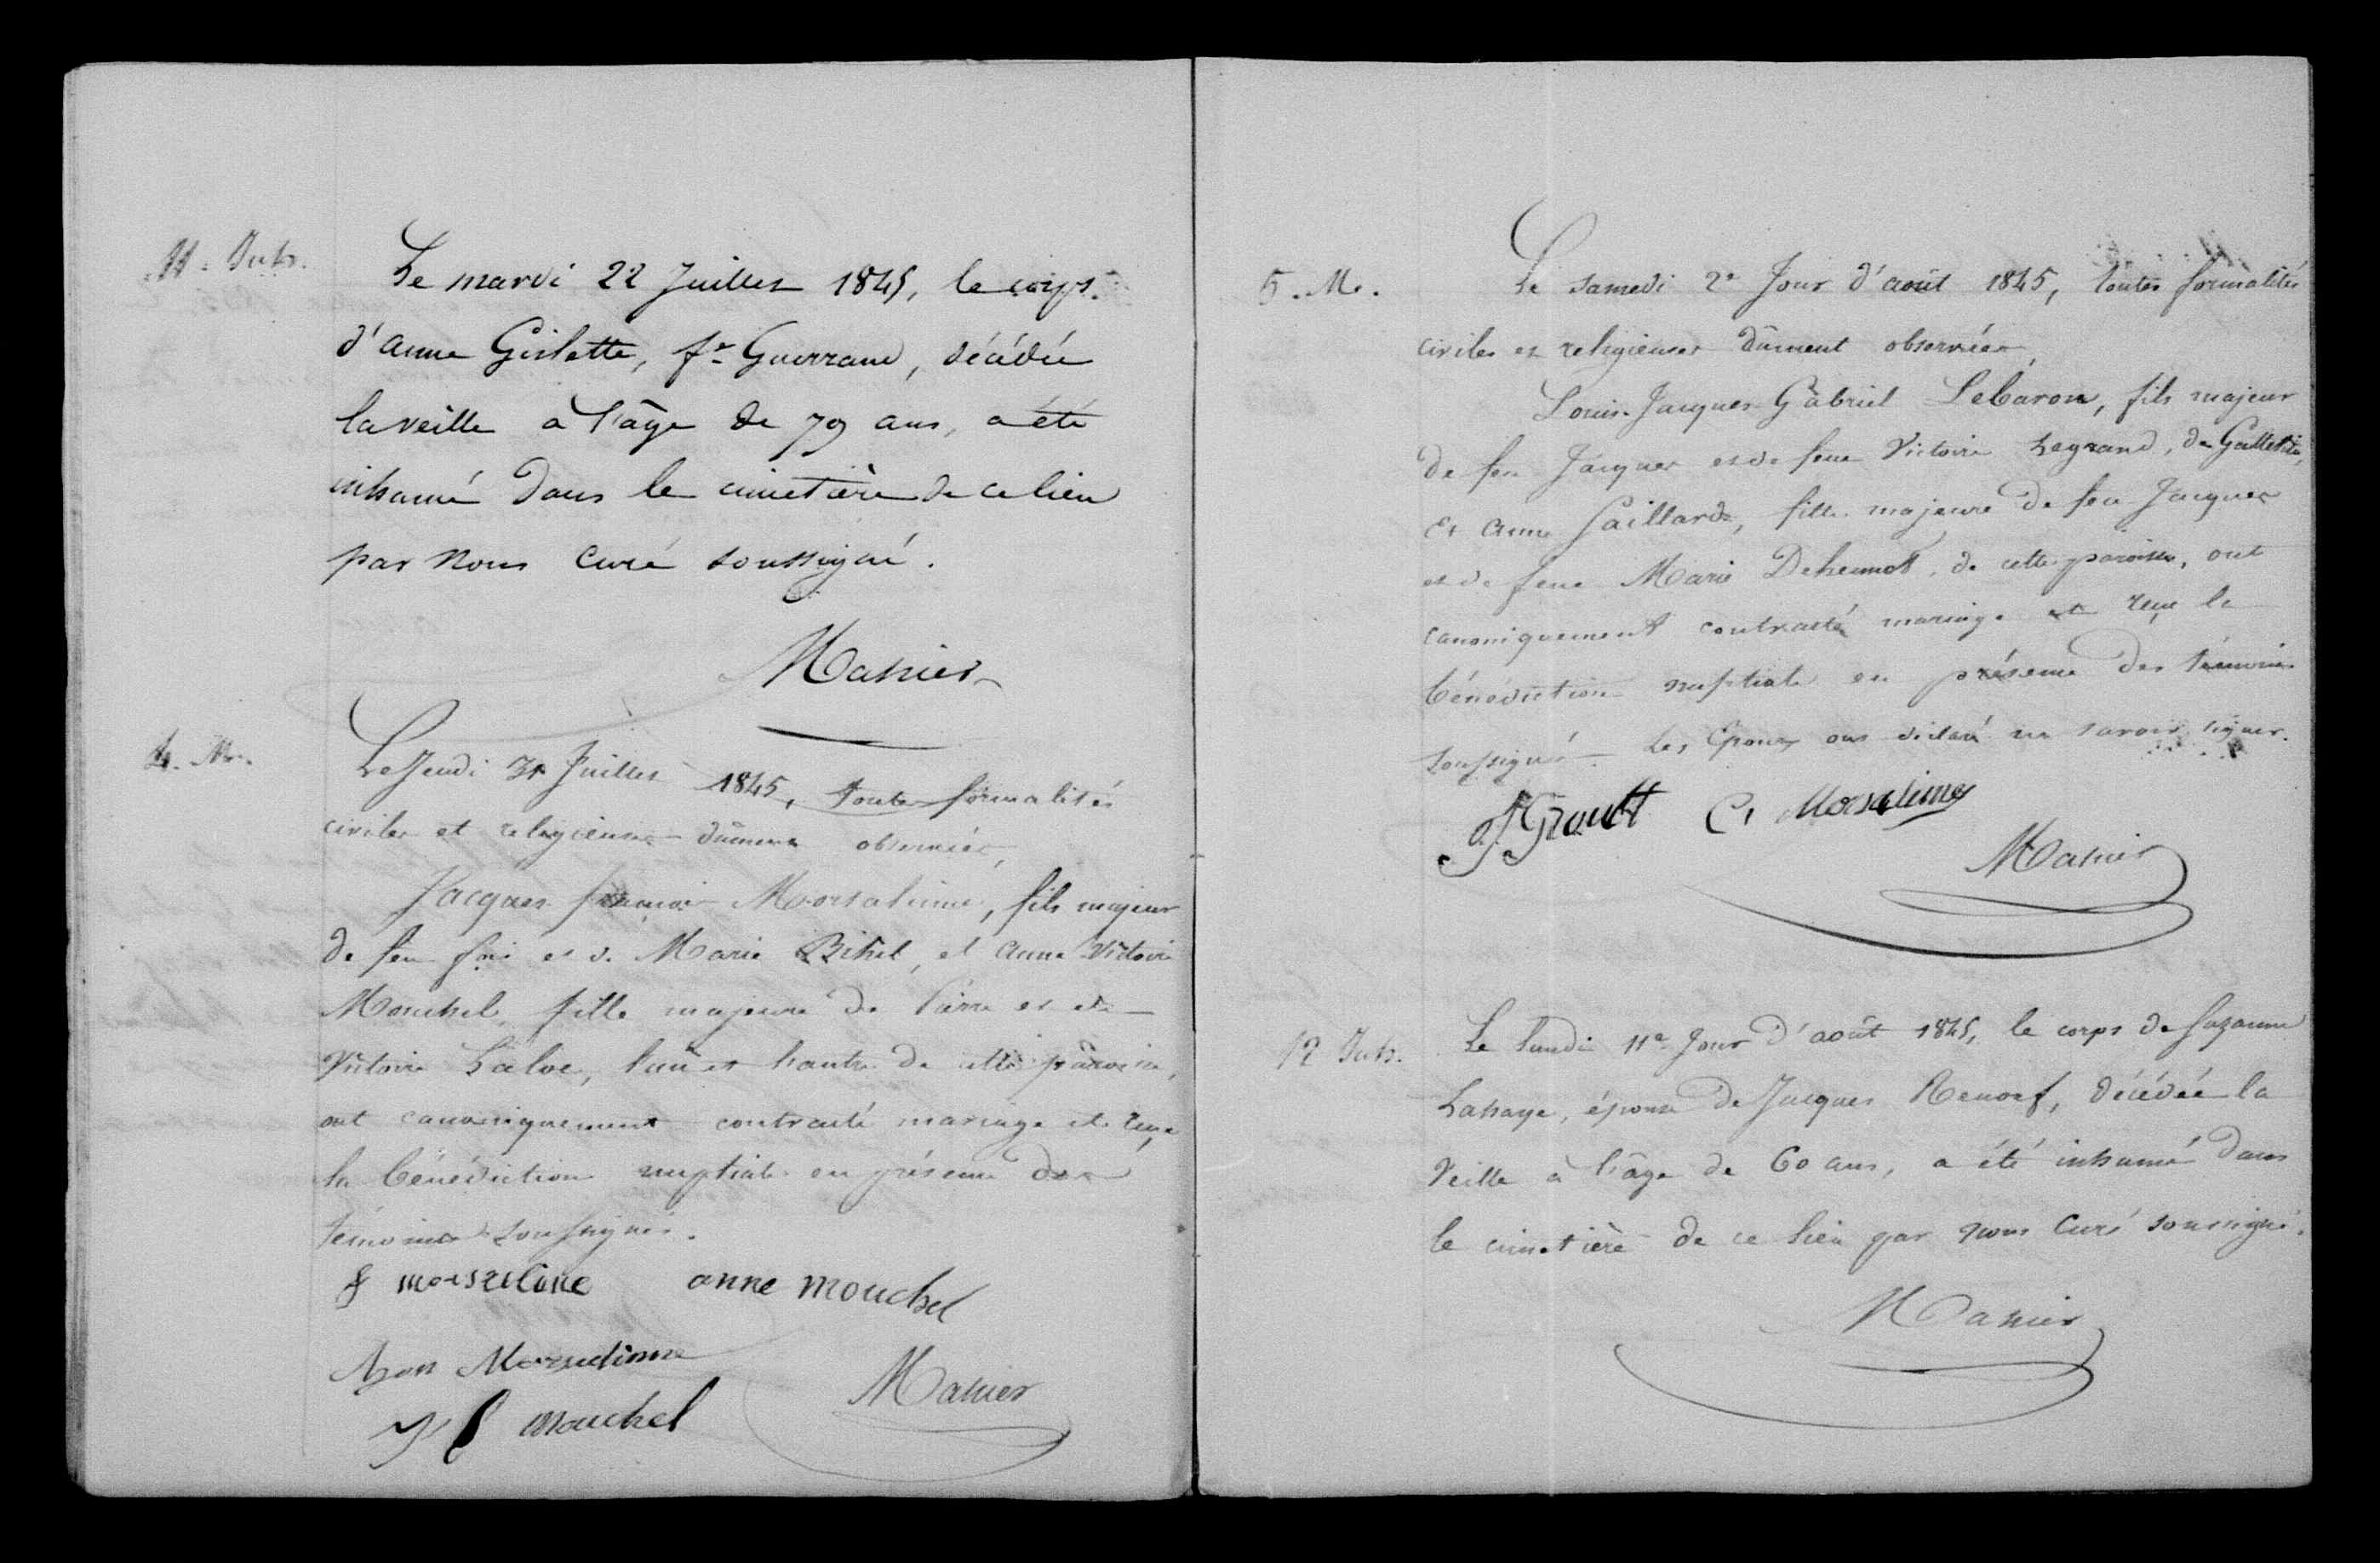 11. Inh.
Le mardi 22 Juillet 1845, le corps
d'anne Gislette, fe Guerrand, décédée
la veille à l'âge de 79 ans, a été
inhumé dans le cimetière de ce lieu
par nous Curé soussigné.
Mahier
4. M.
Le Jeudi 31 Juillet 1845, toutes formalités
civiles et religieuses dûment observées,
Jacques françois Morsalinne, fils majeur
de feu fois et de Marie Bihel, et anne Victoire
Mouchel, fille majeure de Pierre et de
Victoire Laloe, l'un et l'autre de cette paroisse,
ont canoniquement contracté mariage et reçu
la bénédiction nuptiale en présence des
témoins soussignés.
anne mouchel
Bon
mouchel
Mahier
5. M.
Le samedi 2e Jour d'août 1845, toutes formalités
civiles et religieuses dûment observées,
Louis-Jacques-Gabriel Lebaron, fils majeur
de feu Jacques et de feue Victoire Legrand, de
Et anne Gaillard, fille majeure de feu Jacques
et de feue Marie de cette paroisse, ont
canoniquement contracté mariage et reçu la
bénédiction nuptiale en présence des témoins
soussignés. Les Epoux ont déclaré ne savoir signer.
Groult Morsalinne
Mahier
12 Inh.
Le lundi 11e Jour d'août 1845, le corps de Suzanne
Lahaye, épouse de Jacques Renouf, décédée la
veille à l'âge de 60 ans, a été inhumé dans
le cimetière de ce lieu par nous Curé soussigné.
Mahier